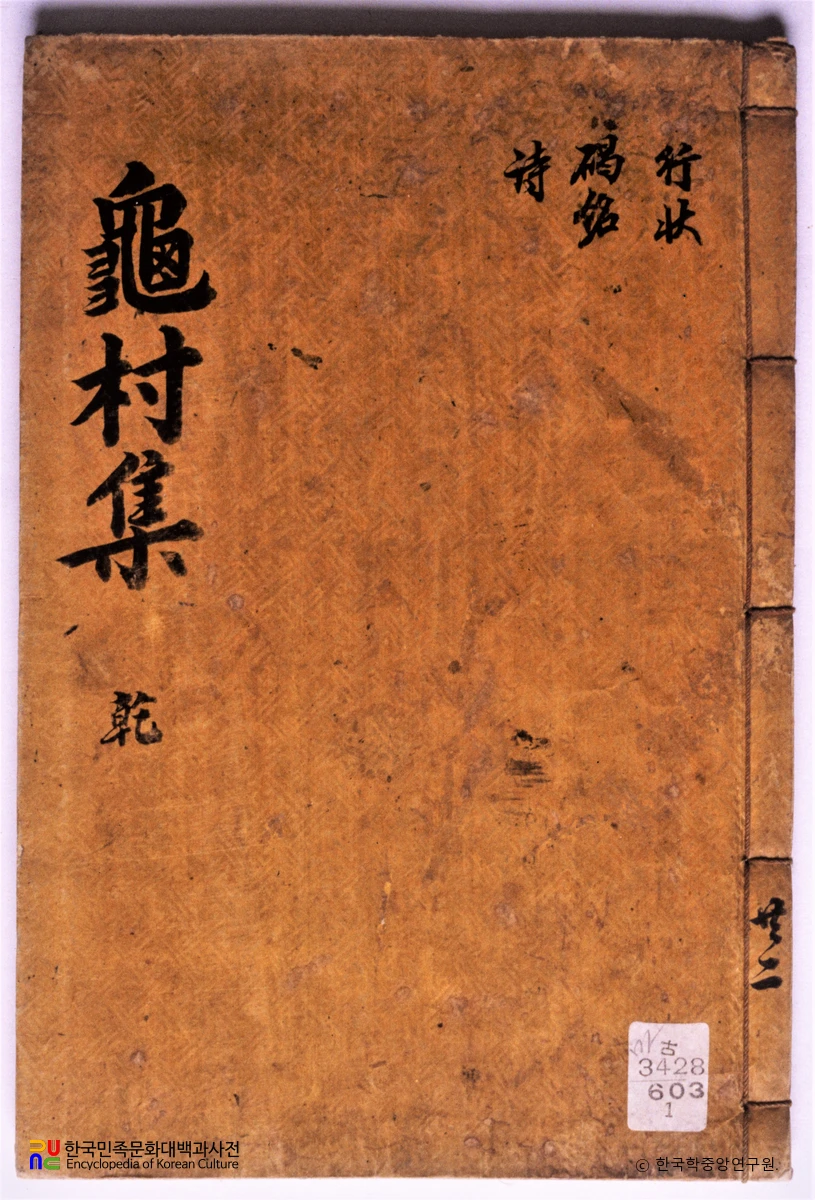 行狀
碣銘
詩
龜村集
乾
共二
古
3428
603
1
한국민족문화대백과사전
Encyclopedia of Korean Culture
© 한국학중앙연구원.